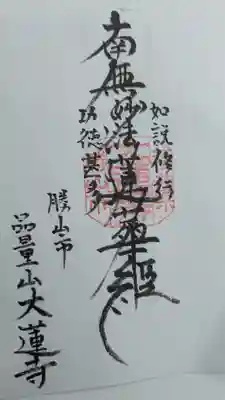 如説修行
南無妙法蓮華経
功徳甚多
勝山市
品量山大蓮寺